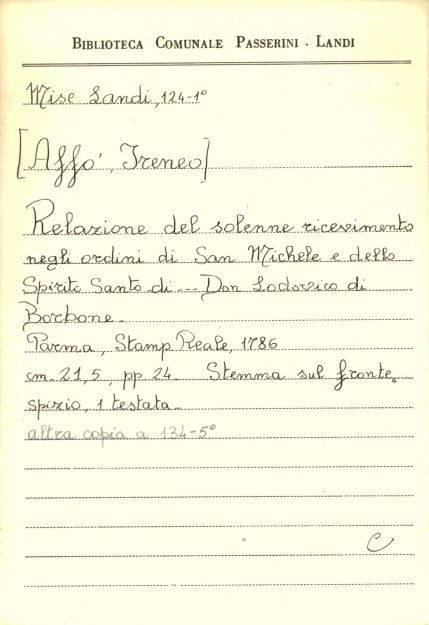 BIBLIOTECA COMUNALE PASSERINI - LANDI
Misc Landi, 124-1°
[Affo', Ireneo]
Relazione del solenne ricevimento
negli ordini di San Michele e dello
Spirito Santo di --- Don Lodovico di
Borbone.
Parma, Stamp Reale, 1786
cm. 21,5, pp. 24. Stemma sul fronte,
spizio, 1 testata.
altra copia a 134-5°
C